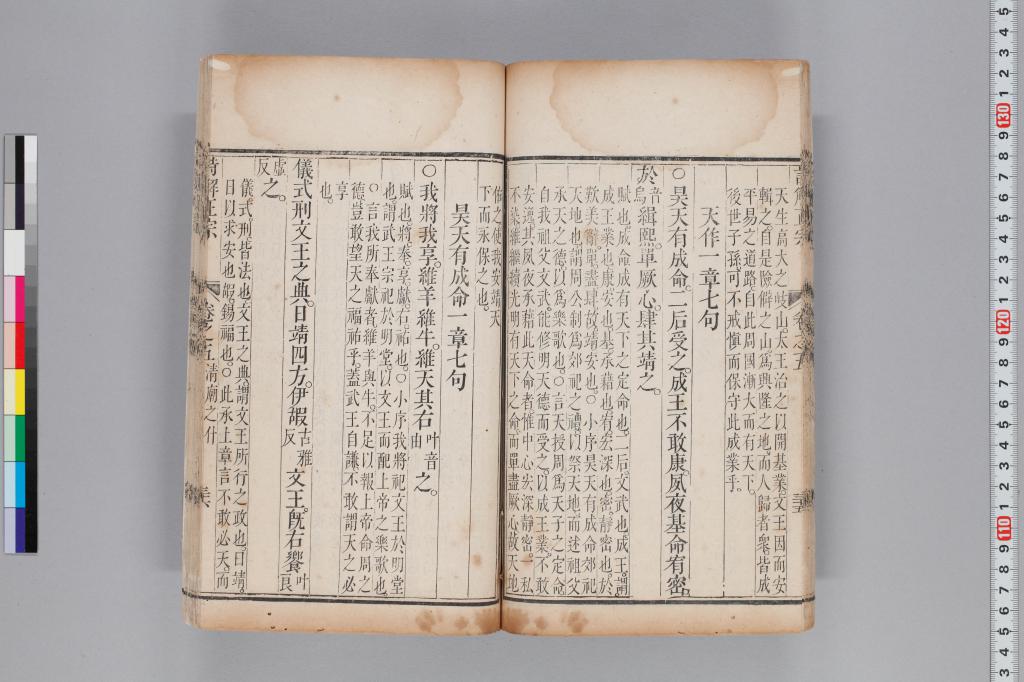 天生高大之岐山太王治之以開基業文王因而安
輯之自是險僻之山為興隆之地而人歸者衆皆成
平易之道路自此周國漸大而有天下
後世子孫可不戒慎而保守此盛業乎
天作一章七句
○昊天有成命二后受之成王不敢康夙夜基命宥密
於音烏緝熙單厥心肆其靖之
賦也成命成有天下之定命也二后文武也成王謂
成王業也康安也基承藉也宥宏深也密靜密也於
歎美辭單盡肆故靖安也○小序昊天有成命郊祀
天地也謂周公制為郊祀之禮以祭天地而述祖父
承天之德以為樂歌也○言天授周為天子之定命
自我祖父文武能修明天德而受之以成王業不敢
安逸其夙夜承藉此天命者惟中心宏深靜密一私
不染維繼續光明有天下之命而單盡厥心故天地
佑之使我安靖天
下而永保之也
昊天有成命一章七句
○我將我享維羊維牛維天其右叶音由之
賦也將奉享獻右祐也○小序我將祀文王於明堂
也謂武王宗祀於明堂以文王而配上帝之樂歌也
○言我所奉獻者維羊與牛不足以報上帝命周之
德豈敢望天之福祐乎蓋武王自謙不敢謂天之必
享也
儀式刑文王之典日靖四方伊嘏古雅反文王既右饗叶良
虛反之
儀式刑皆法也文王之典謂文王所行之政也日靖
日以求安也嘏錫福也○此承上章言不敢必天而
詩解正宗
卷之五清廟之什